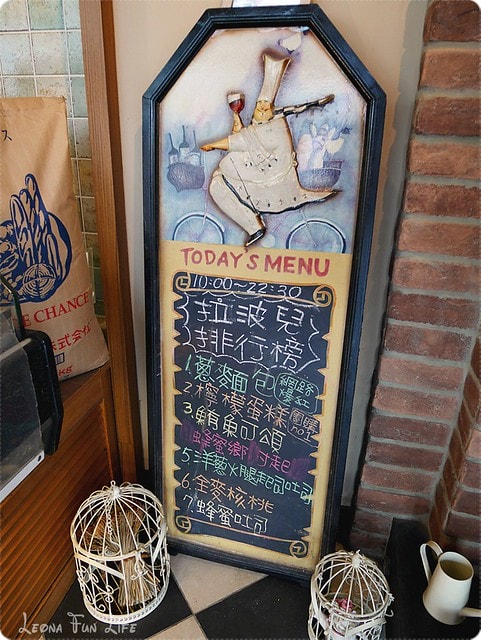 TODAY'S MENU
10:00~22:30
拉波兒
排行榜
1.蔥麥面包 網路爆紅
2.檸檬蛋糕 團購no1
3.鮪魚可頌
蜂蜜鄉村起
5.洋蔥火腿起司吐司
6.全麥核桃
7.蜂蜜吐司
ス
E CHANCE
株式会社
kg
LEONA FUN LIFE